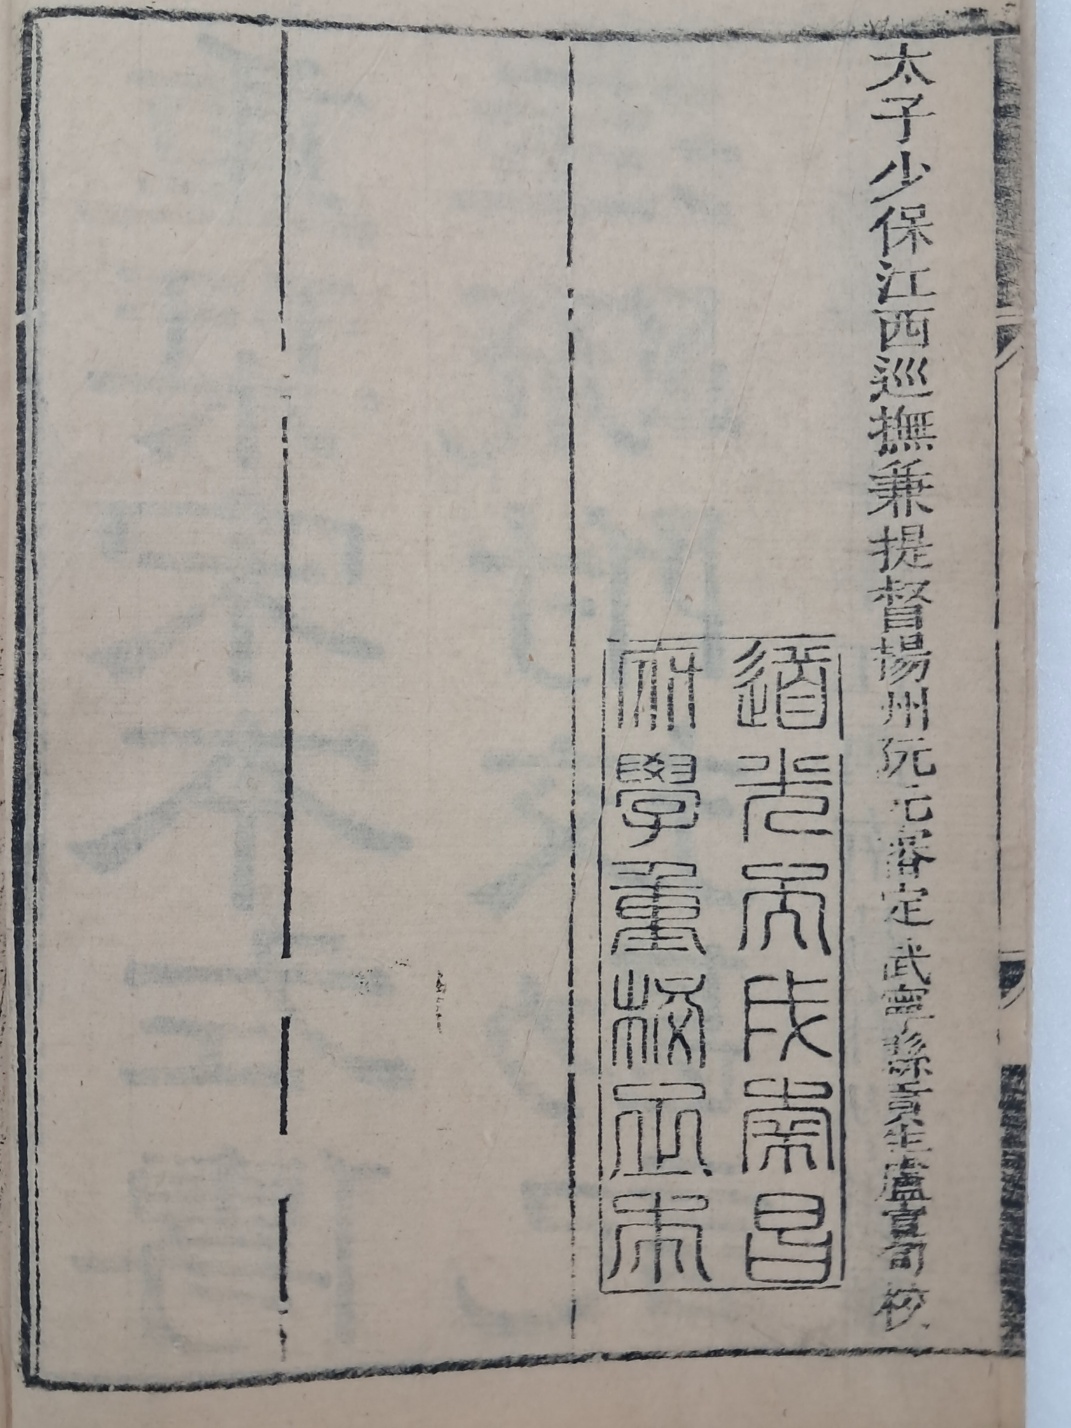 太子少保江西巡撫兼提督揚州阮元審定武寧縣貢生盧宣旬校
道光丙戌南昌
府學重校正本